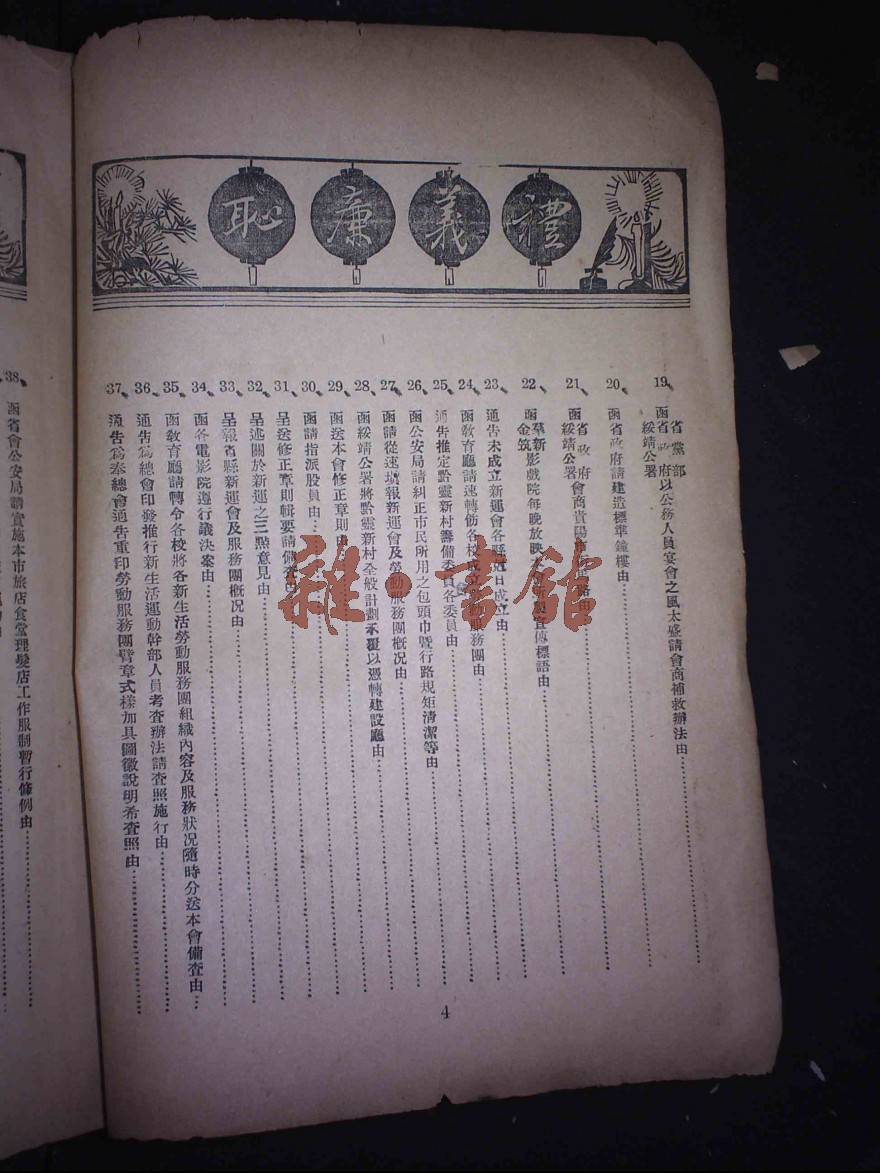 禮義廉恥
19、函省黨部省政府綏靖公署以公務人員宴會之風太盛請會商補救辦法由
20、函省政府請建造標準鐘樓由
21、函省政府綏靖公署會商貴陽市
22、函羣新金筑影戲院每晚放映宣傳標語由
23、通告未成立新運會各縣尅日成立由
24、函敎育廳請速轉飭各校成立勞動服務團由
25、通告推定黔靈新村籌備委員各委員由
26、函公安局請糾正市民所用之包頭巾暨行路規矩清潔等由
27、函請從速填報新運會及勞動服務團概况由
28、函綏靖公署將黔靈新村全般計劃禾覆以憑轉建設廳由
29、函送本會修正章則由
30、函請指派股員由
31、呈送修正章則輯要請備查由
32、呈述關於新運之三點意見由
33、呈報省縣新運會及服務團概况由
34、函各電影院遵行議決案由
35、函敎育廳請轉令各校將各新生活勞動服務團組織內容及服務狀况隨時分送本會備査由
36、通告爲總會印發推行新生活運動幹部人員考査辦法請査照施行由
37、通告爲奉總會通告重印勞動服務團臂章式樣加具圖徽說明希査照由
4
38、函省會公安局請實施本市旅店食堂理髮店工作服制暫行條例由
雜·書館